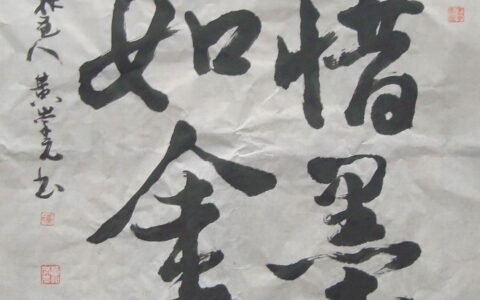 惜墨
如金
色人黄学元书